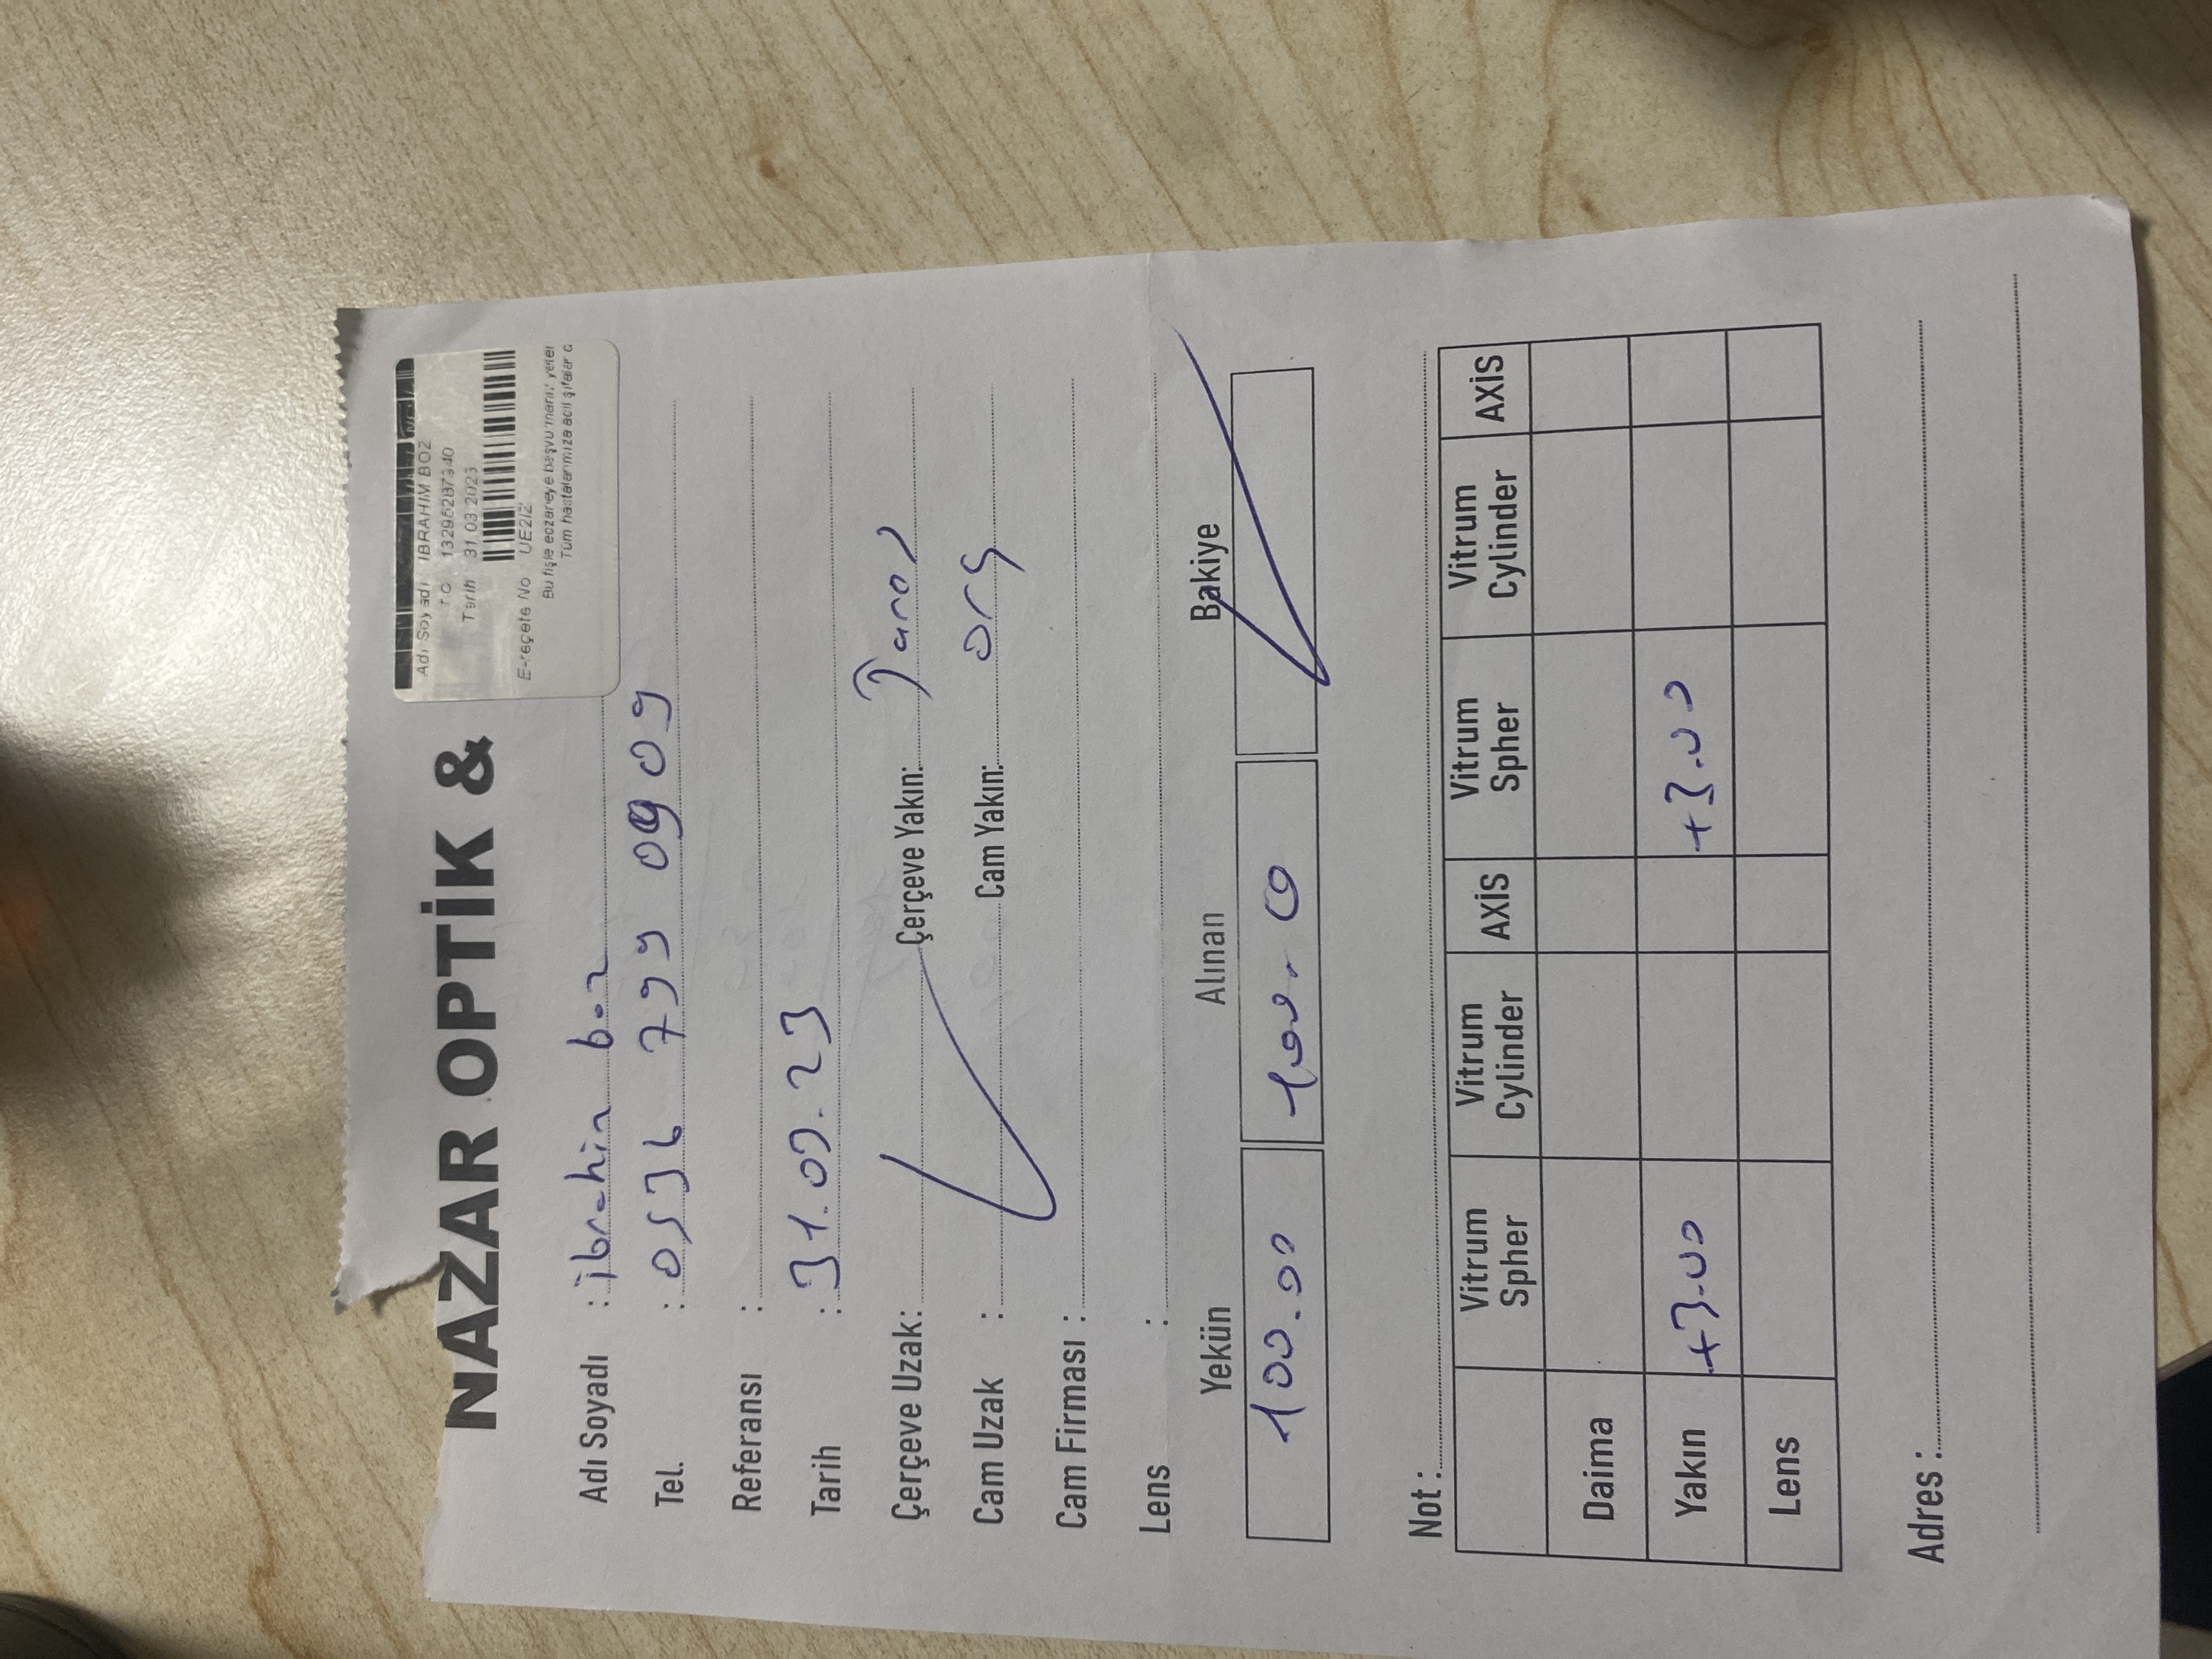 NAZAR OPTİK &
Adı Soyadı : IBRAHIM BOZ
TC : 13296287340
Tarih : 31.03.2023
E-reçete No : UE2IZ
Bu fişle eczaneye başvurmanız yeter
Tüm hastalarımıza acil şifalar d
Adı Soyadı : ibrahim boz
Tel. : 0536 799 0909
Referansı :
Tarih : 31.03.23
Çerçeve Uzak: Çerçeve Yakın:
Cam Uzak : Cam Yakın: org
Cam Firması :
Lens :
Yekün Alınan Bakiye
100.00 100.00
Not :
Vitrum Spher Vitrum Cylinder AXİS Vitrum Spher Vitrum Cylinder AXİS
Daima
Yakın +3.00 +3.00
Lens
Adres :